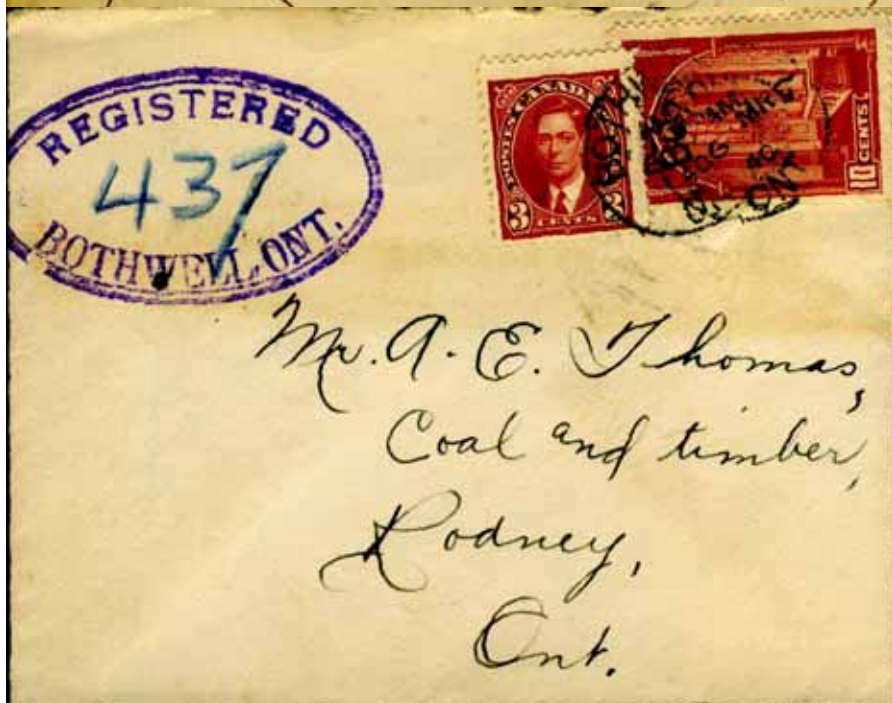 REGISTERED
437
BOTHWELL, ONT.
POSTES CANADA
3 CENTS
10
CENTS
AM
MR
40
ONT
Mr. A. E. Thomas,
Coal and timber,
Rodney,
Ont.